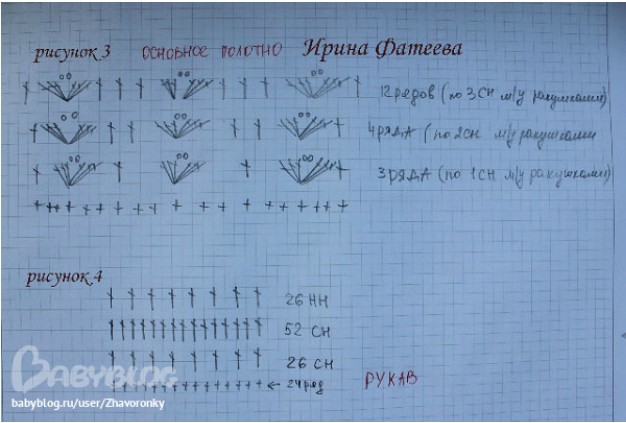 рисунок 3 основное полотно Ирина Фатеева
12 рядов (по 3 СН м/у ракушками)
4 ряда (по 2 СН м/у ракушками
3 ряда (по 1 СН м/у ракушками)
рисунок 4
26
52 СН
26 СН
← 24 ряд
РУКАВ
BABYBLOG
babyblog.ru/user/Zhavoronky